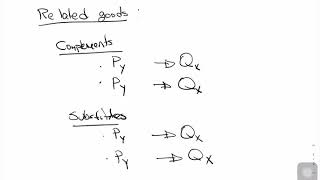 Related goods
Complements
· Py → Qx
· Py → Qx
Substitutes
· Py → Qx
· Py → Qx